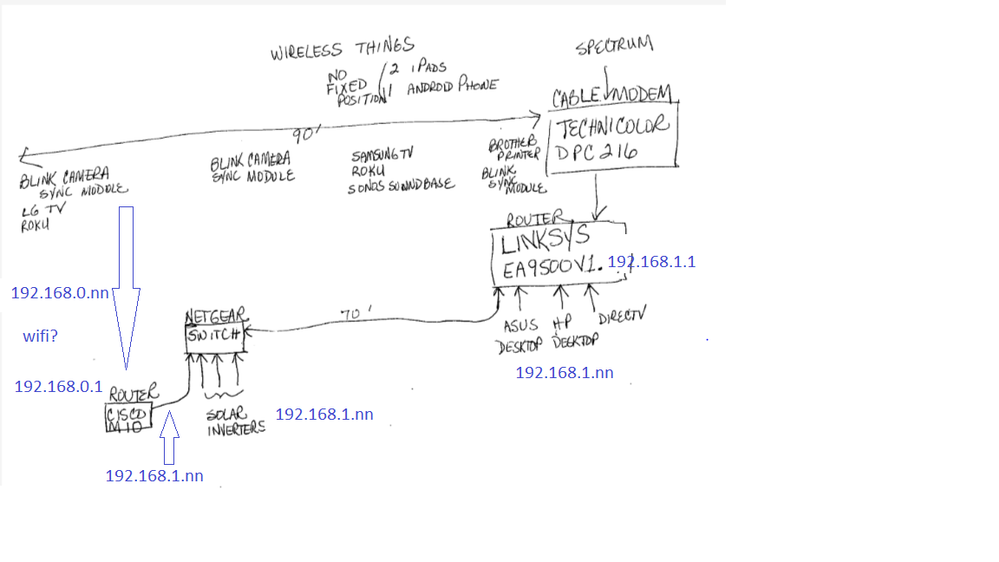 WIRELESS THINGS
NO
FIXED
POSITION
2 iPADS
1 ANDROID PHONE
SPECTRUM
CABLE MODEM
TECHNICOLOR
DPC 216
90'
BLINK CAMERA
SYNC MODULE
LG TV
ROKU
BLINK CAMERA
SYNC MODULE
SAMSUNG TV
ROKU
SONOS SOUNDBASE
BROTHER
PRINTER
BLINK
SYNC
MODULE
ROUTER
LINKSYS
EA9500V1.
192.168.1.1
192.168.0.nn
wifi?
192.168.0.1
NETGEAR
SWITCH
70'
ASUS
DESKTOP
HP
DESKTOP
DIRECTV
192.168.1.nn
ROUTER
CISCO
M10
SOLAR
INVERTERS
192.168.1.nn
192.168.1.nn